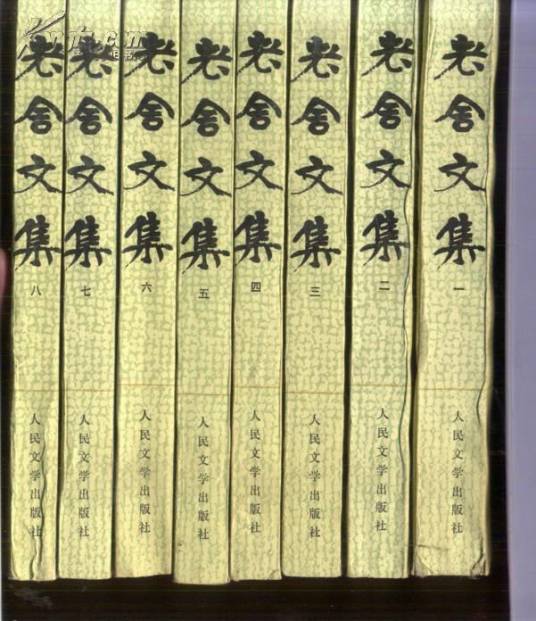 老舍文集 八 人民文学出版社
老舍文集 七 人民文学出版社
老舍文集 六 人民文学出版社
老舍文集 五 人民文学出版社
老舍文集 四 人民文学出版社
老舍文集 三 人民文学出版社
老舍文集 二 人民文学出版社
老舍文集 一 人民文学出版社